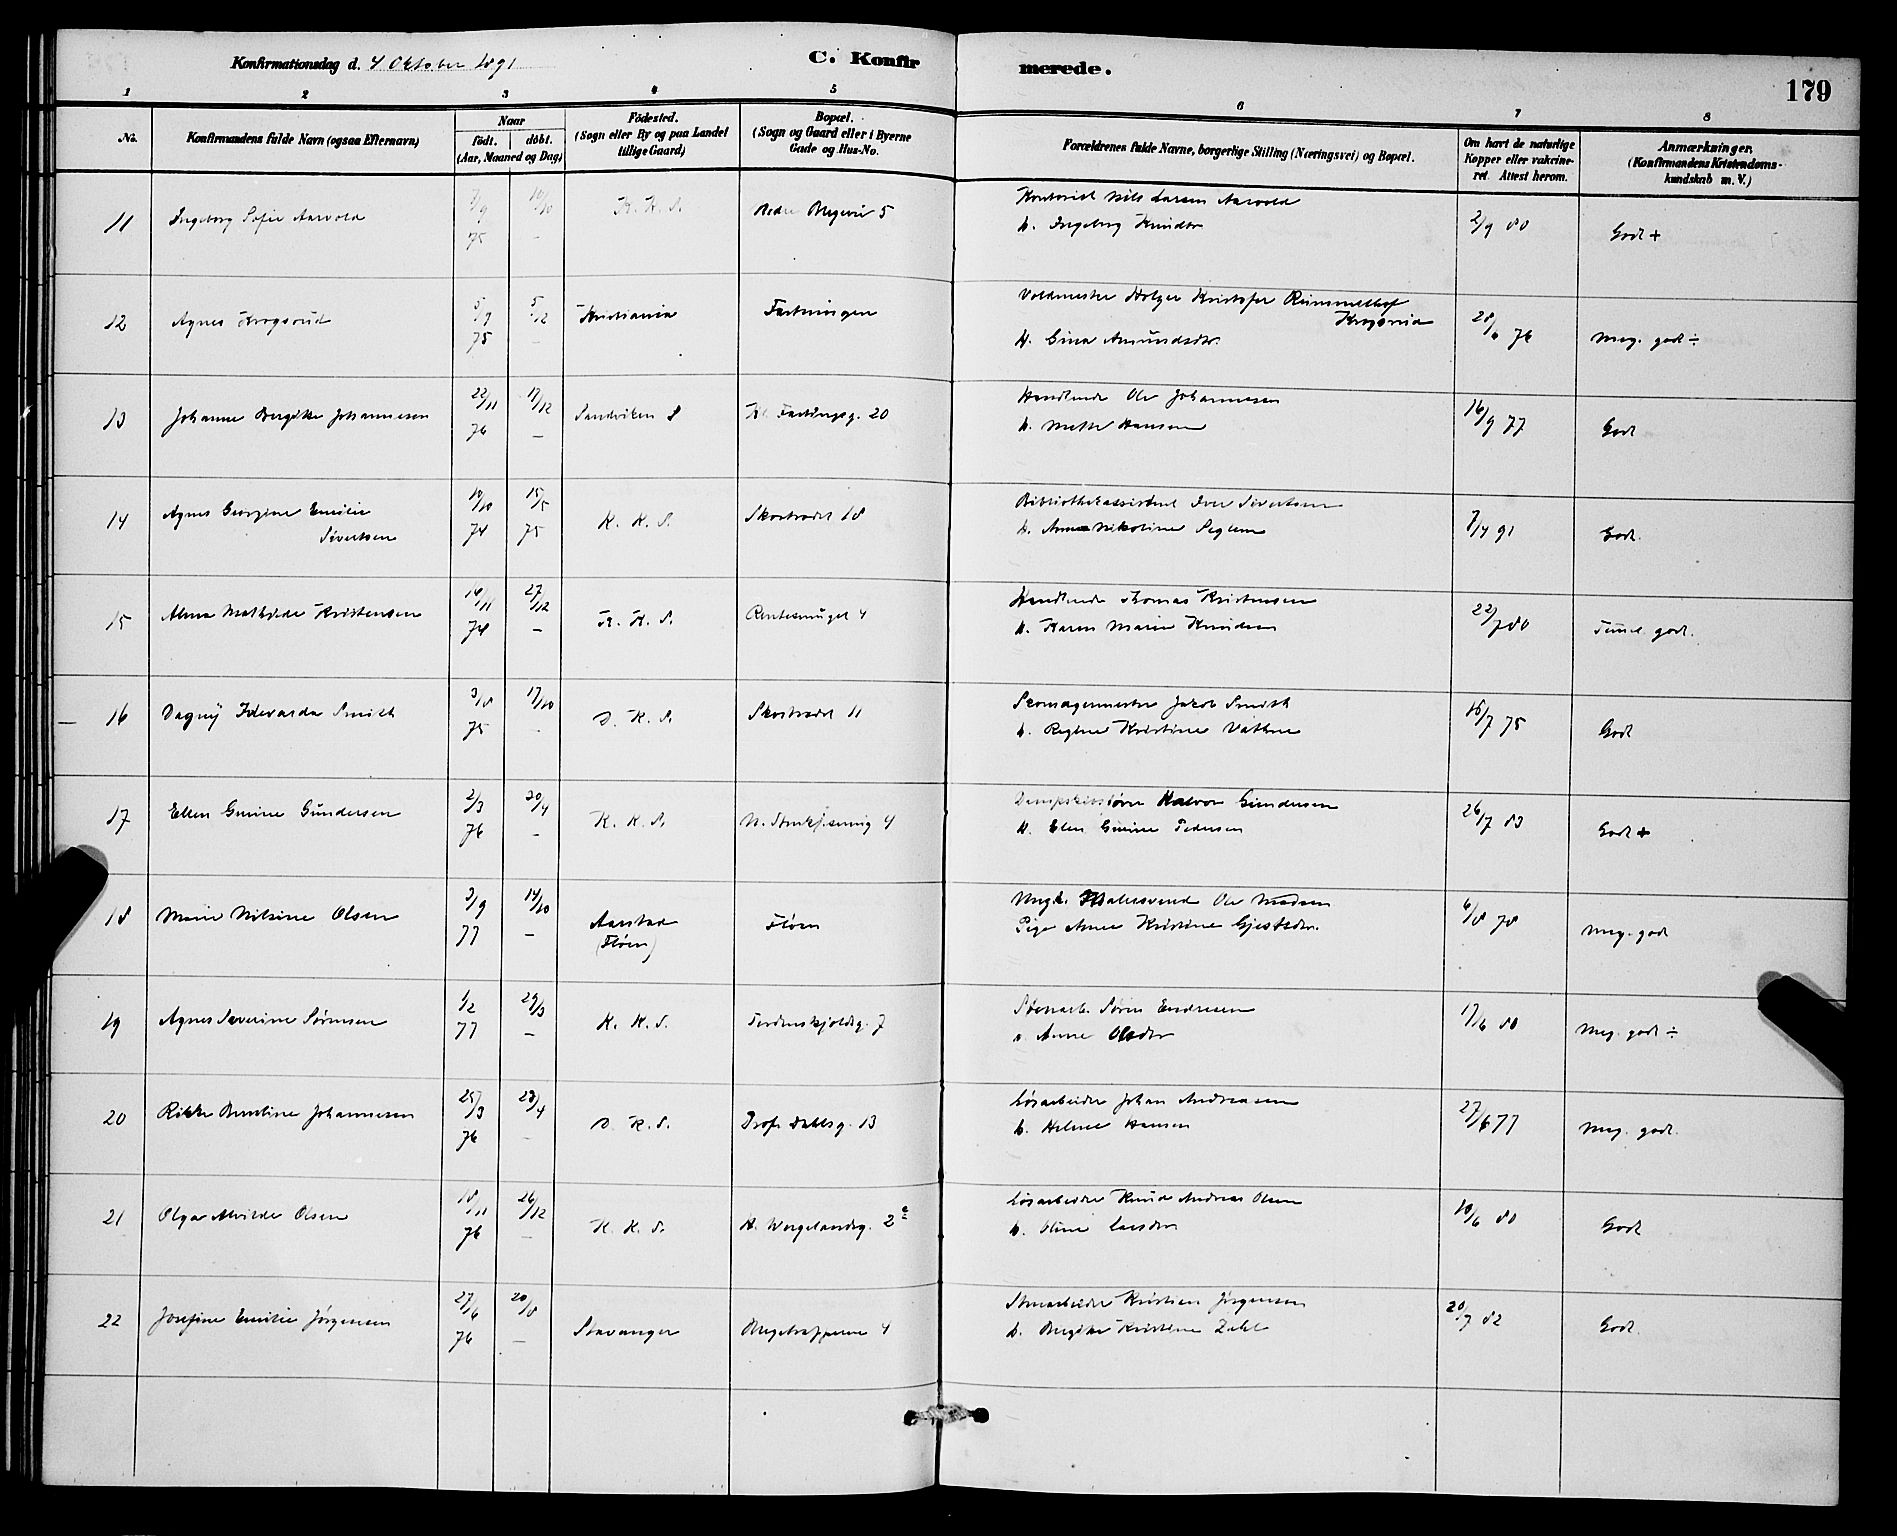 Konfirmationsdag d. 4 Oktober 1891
C. Konfirmerede.
179
1 2 3 4 5 6 7 8
No.
Konfirmandens fulde Navn (ogsaa Efternavn)
Naar
født. døbt.
(Aar, Maaned og Dag)
Fødested.
(Sogn eller By og paa Landet
tillige Gaard)
Bopæl.
(Sogn og Gaard eller i Byerne
Gade og Hus-No.
Forældrenes fulde Navne, borgerlige Stilling (Næringsvei) og Bopæl.
Om havt de naturlige
Kopper eller vakcine-
ret. Attest herom.
Anmærkninger.
(Konfirmandens Kristendoms-
kundskab m. V.)
11 Ingeborg Sofie Aarvold 10/10 K. K. S. 5 Nils Larsen Aarvold 2/9 80 Godt +
75 - h. Ingeborg Knudsdtr
12 Agnes Krogsrud 5/9 5/12 Kristiania Festningen Holger Kristofer
Krogsrud
75 - h. Gina Amundsdtr. 28/6 76 Meg. godt ÷
13 Johanne Bergitte Johannesen 22/11 17/12 Sandviken S 20 Handlende Ole Johannesen 16/9 77 Godt
76 - h. Mette Hansen
14 Agnes Georgine Emilie 10/10 15/5 K. K. S. Skostrædet 18 Bibliothekassistent Iver Sivertsen 91 Godt.
Sivertsen 74 75 h. Anne Nikoline Seglem
15 Alma Mathilde Kristensen 14/11 27/12 K. K. S. 4 Handlende Thomas Kristensen 22/7 80 Temel. godt.
74 - h. Karen Marie Knudsen
16 Dagny Edevarda Smith 3/8 17/10 D. K. S. Skostrædet 11 Skomagermester Jakob Smith 15/7 75 Godt
75 - h. Regine Kristine Vathne
17 Ellen Gurine Gundersen 2/3 30/4 K. K. S. 4 Halvor Gundersen 26/7 83 Godt +
76 - h. Elen Gurine Pedersen
18 Marie Nilsine Olsen 3/9 14/10 Aarstad Fløen Ungk. Malersvend Ole Madsen 6/8 78 Meg. godt
77 - (Fløen) Pige Anne Kristine Gjestsdtr.
19 Agnes Severine Sørensen 1/2 29/3 K. K. S. Tordenskjoldsg. 7 Søren Endresen 17/6 80 Meg. godt ÷
77 - h. Anne Olsdtr
20 Rikke Berntine Johannesen 25/3 23/4 D. K. S. Prof. Dahlsg. 13 Løsarbeider Johan Andreasen 27/6 77 Meg. godt.
76 - h. Helene Hansen
21 Olga Alvilde Olsen 18/11 26/12 K. K. S. H. Wergelandsg. 2 a Løsarbeider Knud Andreas Olsen 10/6 80 Godt
76 - h. Oline Larsdtr
22 Josefine Emilie Jørgensen 27/6 20/8 Stavanger 4 Kristian Jørgensen 20/7 82 Godt.
76 - h. Bergitte Kristine Zahl